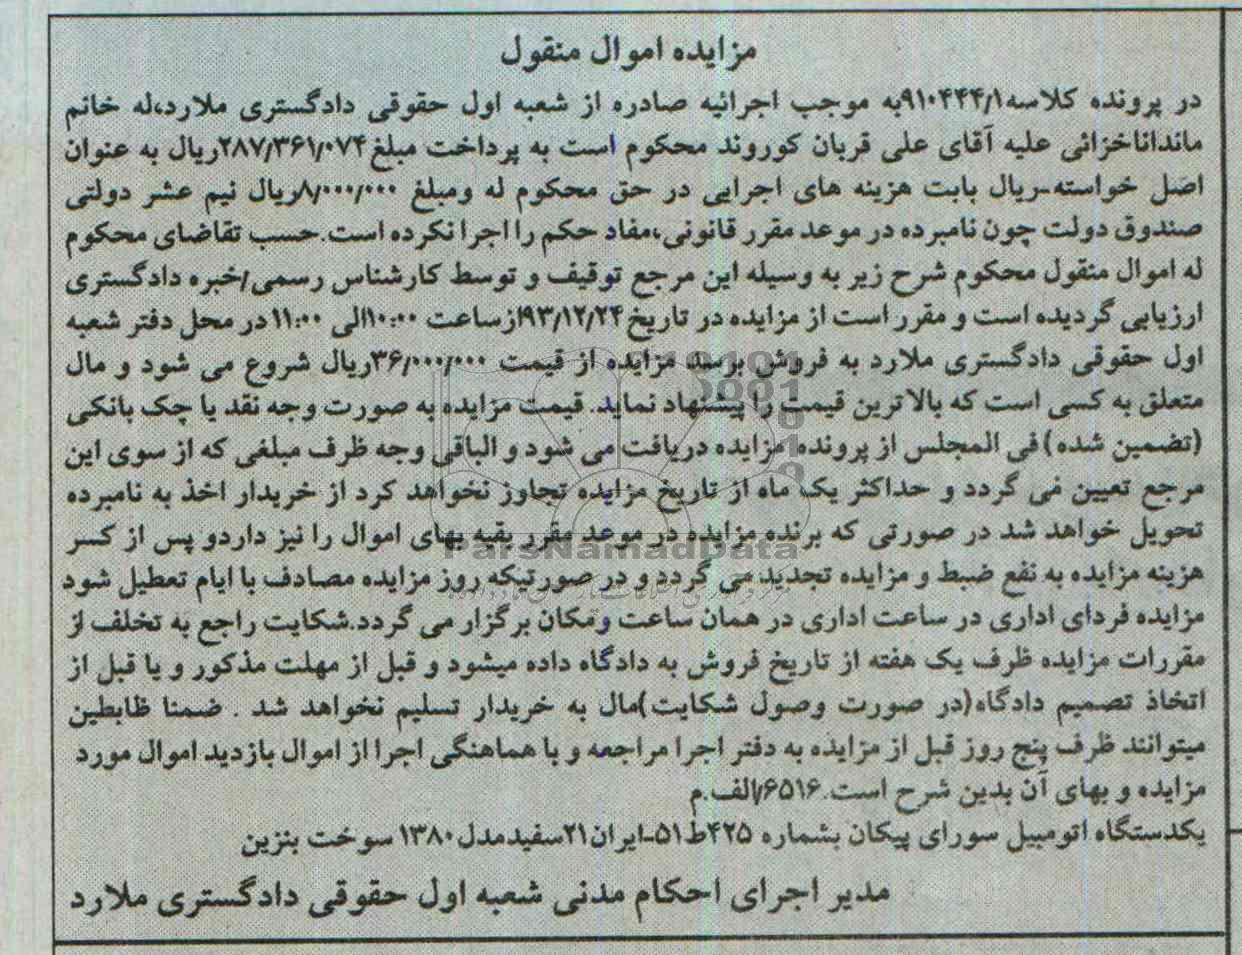 مزایده اموال منقول
در پرونده کلاسه ۹۱۰۴۴۴/۱به موجب اجرائیه صادره از شعبه اول حقوقی دادگستری ملارد،له خانم
مانداناخزائی علیه آقای علی قربان کوروند محکوم است به پرداخت مبلغ ۲۸۷/۳۶۱/۰۷۴ریال به عنوان
اصل خواسته-ریال بابت هزینه های اجرایی در حق محکوم له ومبلغ ۸/۰۰۰/۰۰۰ریال نیم عشر دولتی
صندوق دولت چون نامبرده در موعد مقرر قانونی،مفاد حکم را اجرا نکرده است.حسب تقاضای محکوم
له اموال منقول محکوم شرح زیر به وسیله این مرجع توقیف و توسط کارشناس رسمی/خبره دادگستری
ارزیابی گردیده است و مقرر است از مزایده در تاریخ ۹۳/۱۲/۲۴ازساعت ۱۰:۰۰الی ۱۱:۰۰ در محل دفتر شعبه
اول حقوقی دادگستری ملارد به فروش برسد مزایده از قیمت ۳۶/۰۰۰/۰۰۰ریال شروع می شود و مال
متعلق به کسی است که بالاترین قیمت را پیشنهاد نماید. قیمت مزایده به صورت وجه نقد یا چک بانکی
(تضمین شده) فی المجلس از پرونده مزایده دریافت می شود و الباقی وجه ظرف مبلغی که از سوی این
مرجع تعیین می گردد و حداکثر یک ماه از تاریخ مزایده تجاوز نخواهد کرد از خریدار اخذ به نامبرده
تحویل خواهد شد در صورتی که برنده مزایده در موعد مقرر بقیه بهای اموال را نیز داردو پس از کسر
هزینه مزایده به نفع ضبط و مزایده تجدید می گردد و در صورتیکه روز مزایده مصادف با ایام تعطیل شود
مزایده فردای اداری در ساعت اداری در همان ساعت ومکان برگزار می گردد.شکایت راجع به تخلف از
مقررات مزایده ظرف یک هفته از تاریخ فروش به دادگاه داده میشود و قبل از مهلت مذکور و یا قبل از
اتخاذ تصمیم دادگاه(در صورت وصول شکایت)مال به خریدار تسلیم نخواهد شد . ضمنا ظابطین
میتوانند ظرف پنج روز قبل از مزایده به دفتر اجرا مراجعه و با هماهنگی اجرا از اموال بازدید اموال مورد
مزایده و بهای آن بدین شرح است.۶۵۱۶/الف.م
یکدستگاه اتومبیل سورای پیکان بشماره ۴۲۵ط۵۱-ایران۲۱سفیدمدل۱۳۸۰ سوخت بنزین
مدیر اجرای احکام مدنی شعبه اول حقوقی دادگستری ملارد
ParsNamadData